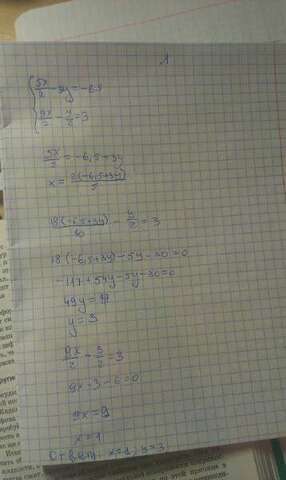 1
5x/2 - 3y = -6,5
9x/2 - y/2 = 3
5x/2 = -6,5+3y
x = 2(-6,5+3y)/5
18(-6,5+3y)/10 - y/2 = 3
18(-6,5+3y)-5y-30=0
-117+54y-5y-30=0
49y=
y=3
9x/2 - 3/2 = 3
9x-3-6=0
9x=9
x=1
Ответ: x=1, y=3